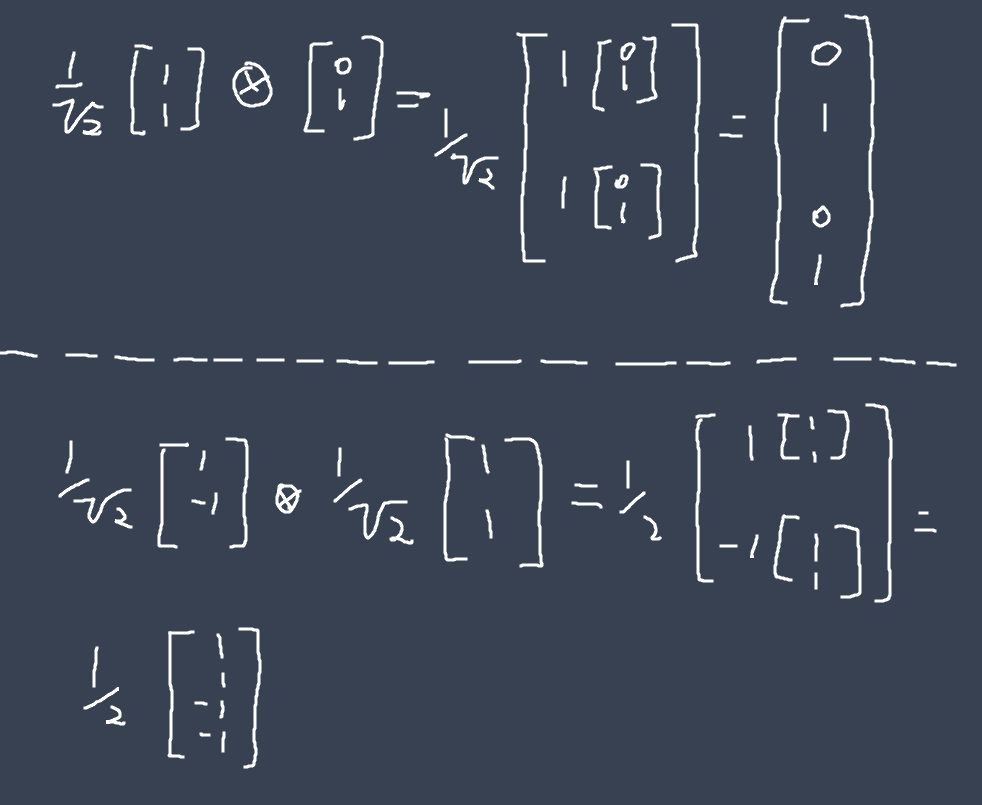 1/√2 [1 1] ⊗ [0 1] = 1/√2 [1 [0 1] 1 [0 1]] = [0 1 0 1]
1/√2 [1 -1] ⊗ 1/√2 [1 1] = 1/2 [1 [1 1] -1 [1 1]] =
1/2 [1 1 -1 -1]